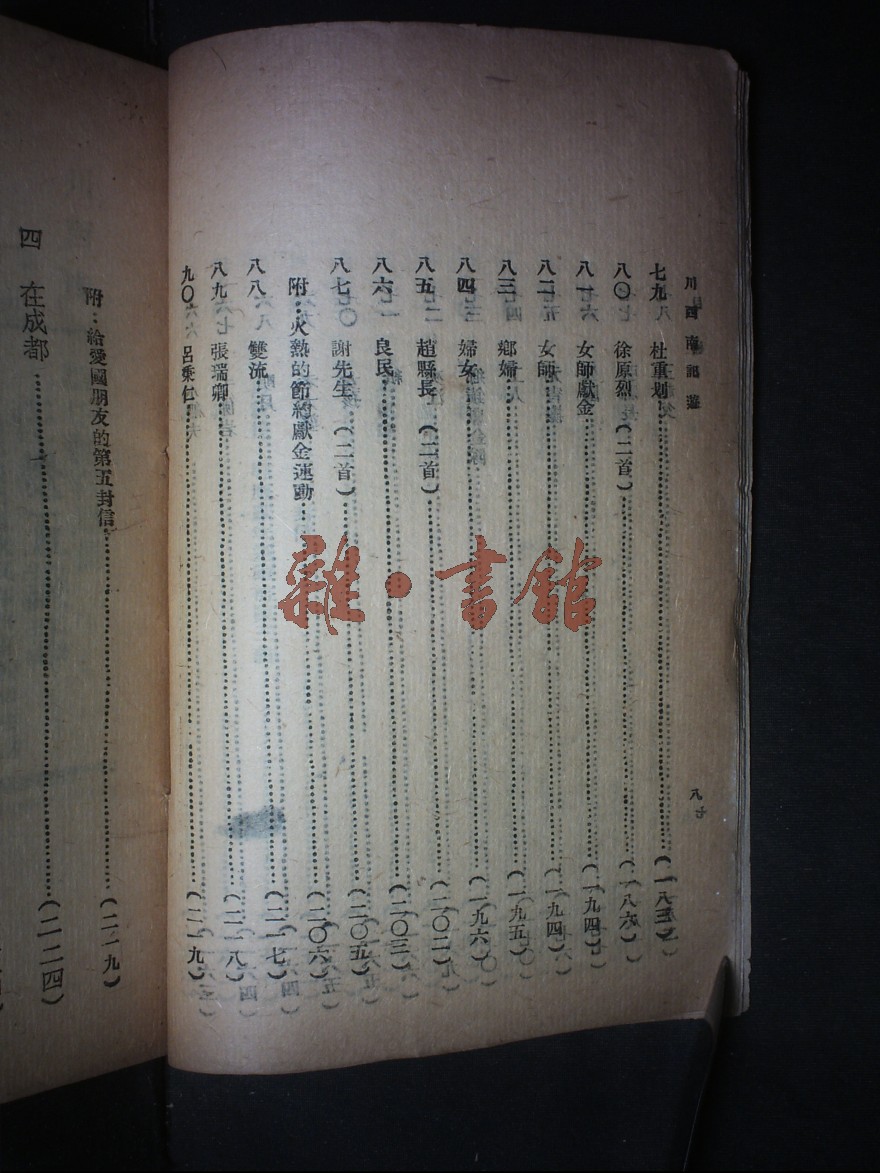 川西南記遊
八
七九 杜重划……(一八三)
八〇 徐原烈(二首)……(一八六)
八一 女師獻金……(一九四)
八二 女師……(一九四)
八三 鄉婦……(一九五)
八四 婦女……(一九六)
八五 趙縣長(二首)……(二〇二)
八六 良民……(二〇三)
八七 謝先生(二首)……(二〇五)
附：火熱的節約獻金運動……(二〇六)
八八 雙流……(二一七)
八九 張瑞卿……(二一八)
九〇 呂秉仁……(二一九)
附：給愛國朋友的第五封信……(二一九)
四 在成都……(二二四)
雜·書館